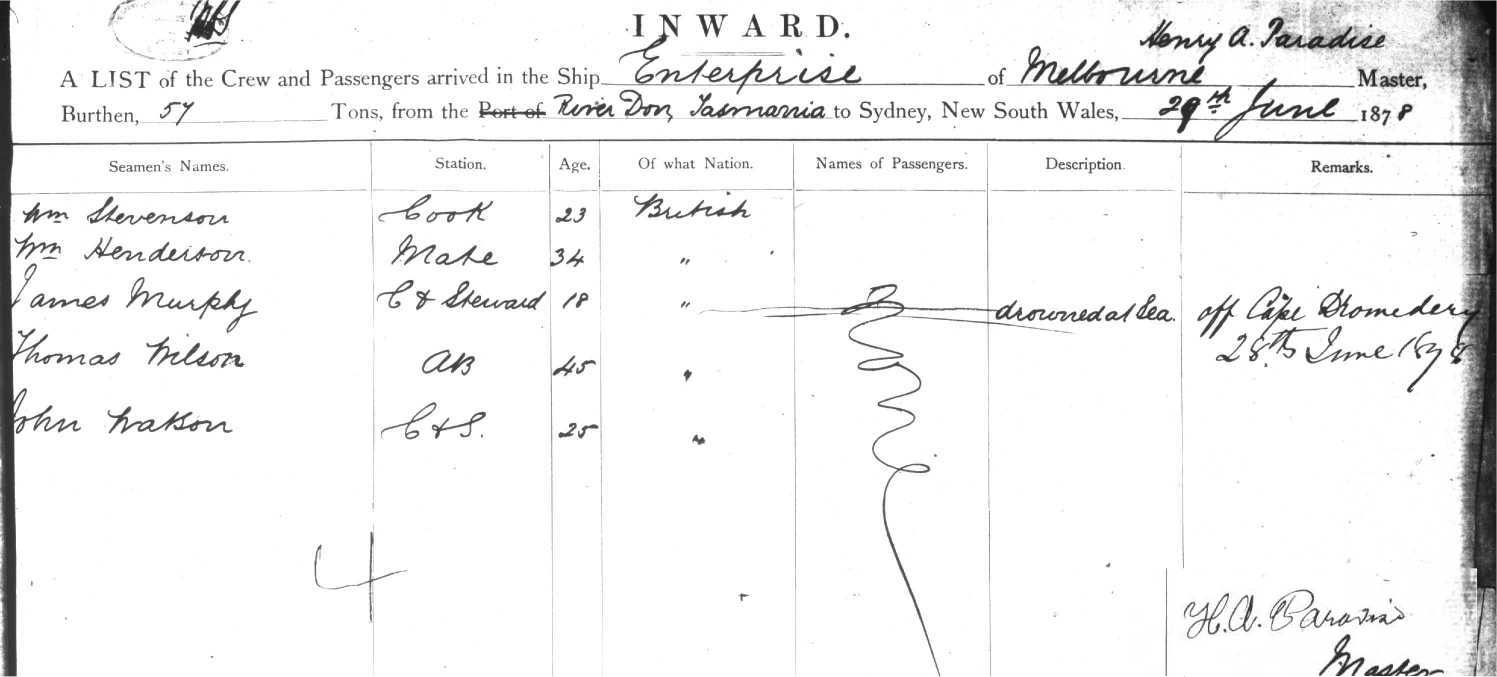 INWARD.
Henry A. Paradise
A LIST of the Crew and Passengers arrived in the Ship Enterprise of Melbourne Master,
Burthen, 57 Tons, from the Port of River Don, Tasmania to Sydney, New South Wales, 29th June 1878
Seamen's Names. Station. Age. Of what Nation. Names of Passengers. Description. Remarks.
Wm Stevenson Cook 23 British
Wm Henderson. Mate 34 "
James Murphy C & Steward 18 " drowned at Sea. off Cape Dromedery
28th June 1878
Thomas Wilson AB 45 "
John Watson C & S. 25 "
4
H. A. Paradise
Master